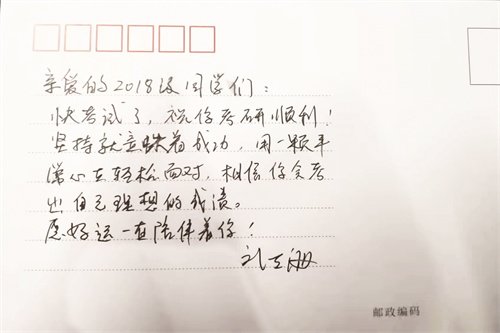 亲爱的2018级同学们：
快考试了，祝你考研顺利！
坚持就意味着成功，用一颗平
常心去轻松面对，相信你会考
出自己理想的成绩。
愿好运一直陪伴着你！
邮政编码